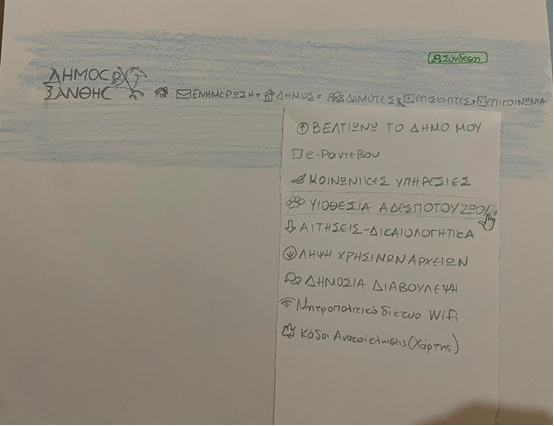 Σύνδεση
ΔΗΜΟΣ
ΞΑΝΘΗΣ
ΕΝΗΜΕΡΩΣΗ ΔΗΜΟΣ ΔΗΜΟΤΕΣ ΕΠΙΣΚΕΠΤΕΣ ΕΠΙΚΟΙΝΩΝΙΑ
ΒΕΛΤΙΩΝΩ ΤΟ ΔΗΜΟ ΜΟΥ
e-Ραντεβου
ΚΟΙΝΩΝΙΚΕΣ ΥΠΗΡΕΣΙΕΣ
ΥΙΟΘΕΣΙΑ ΑΔΕΣΠΟΤΟΥ ΖΩΟΥ
ΑΙΤΗΣΕΙΣ-ΔΙΚΑΙΟΛΟΓΗΤΙΚΑ
ΛΗΨΗ ΧΡΗΣΙΜΩΝ ΑΡΧΕΙΩΝ
ΔΗΜΟΣΙΑ ΔΙΑΒΟΥΛΕΨΗ
Μητροπολιτικό δίκτυο Wifi
Κάδοι Ανακύκλωσης (Χάρτης)